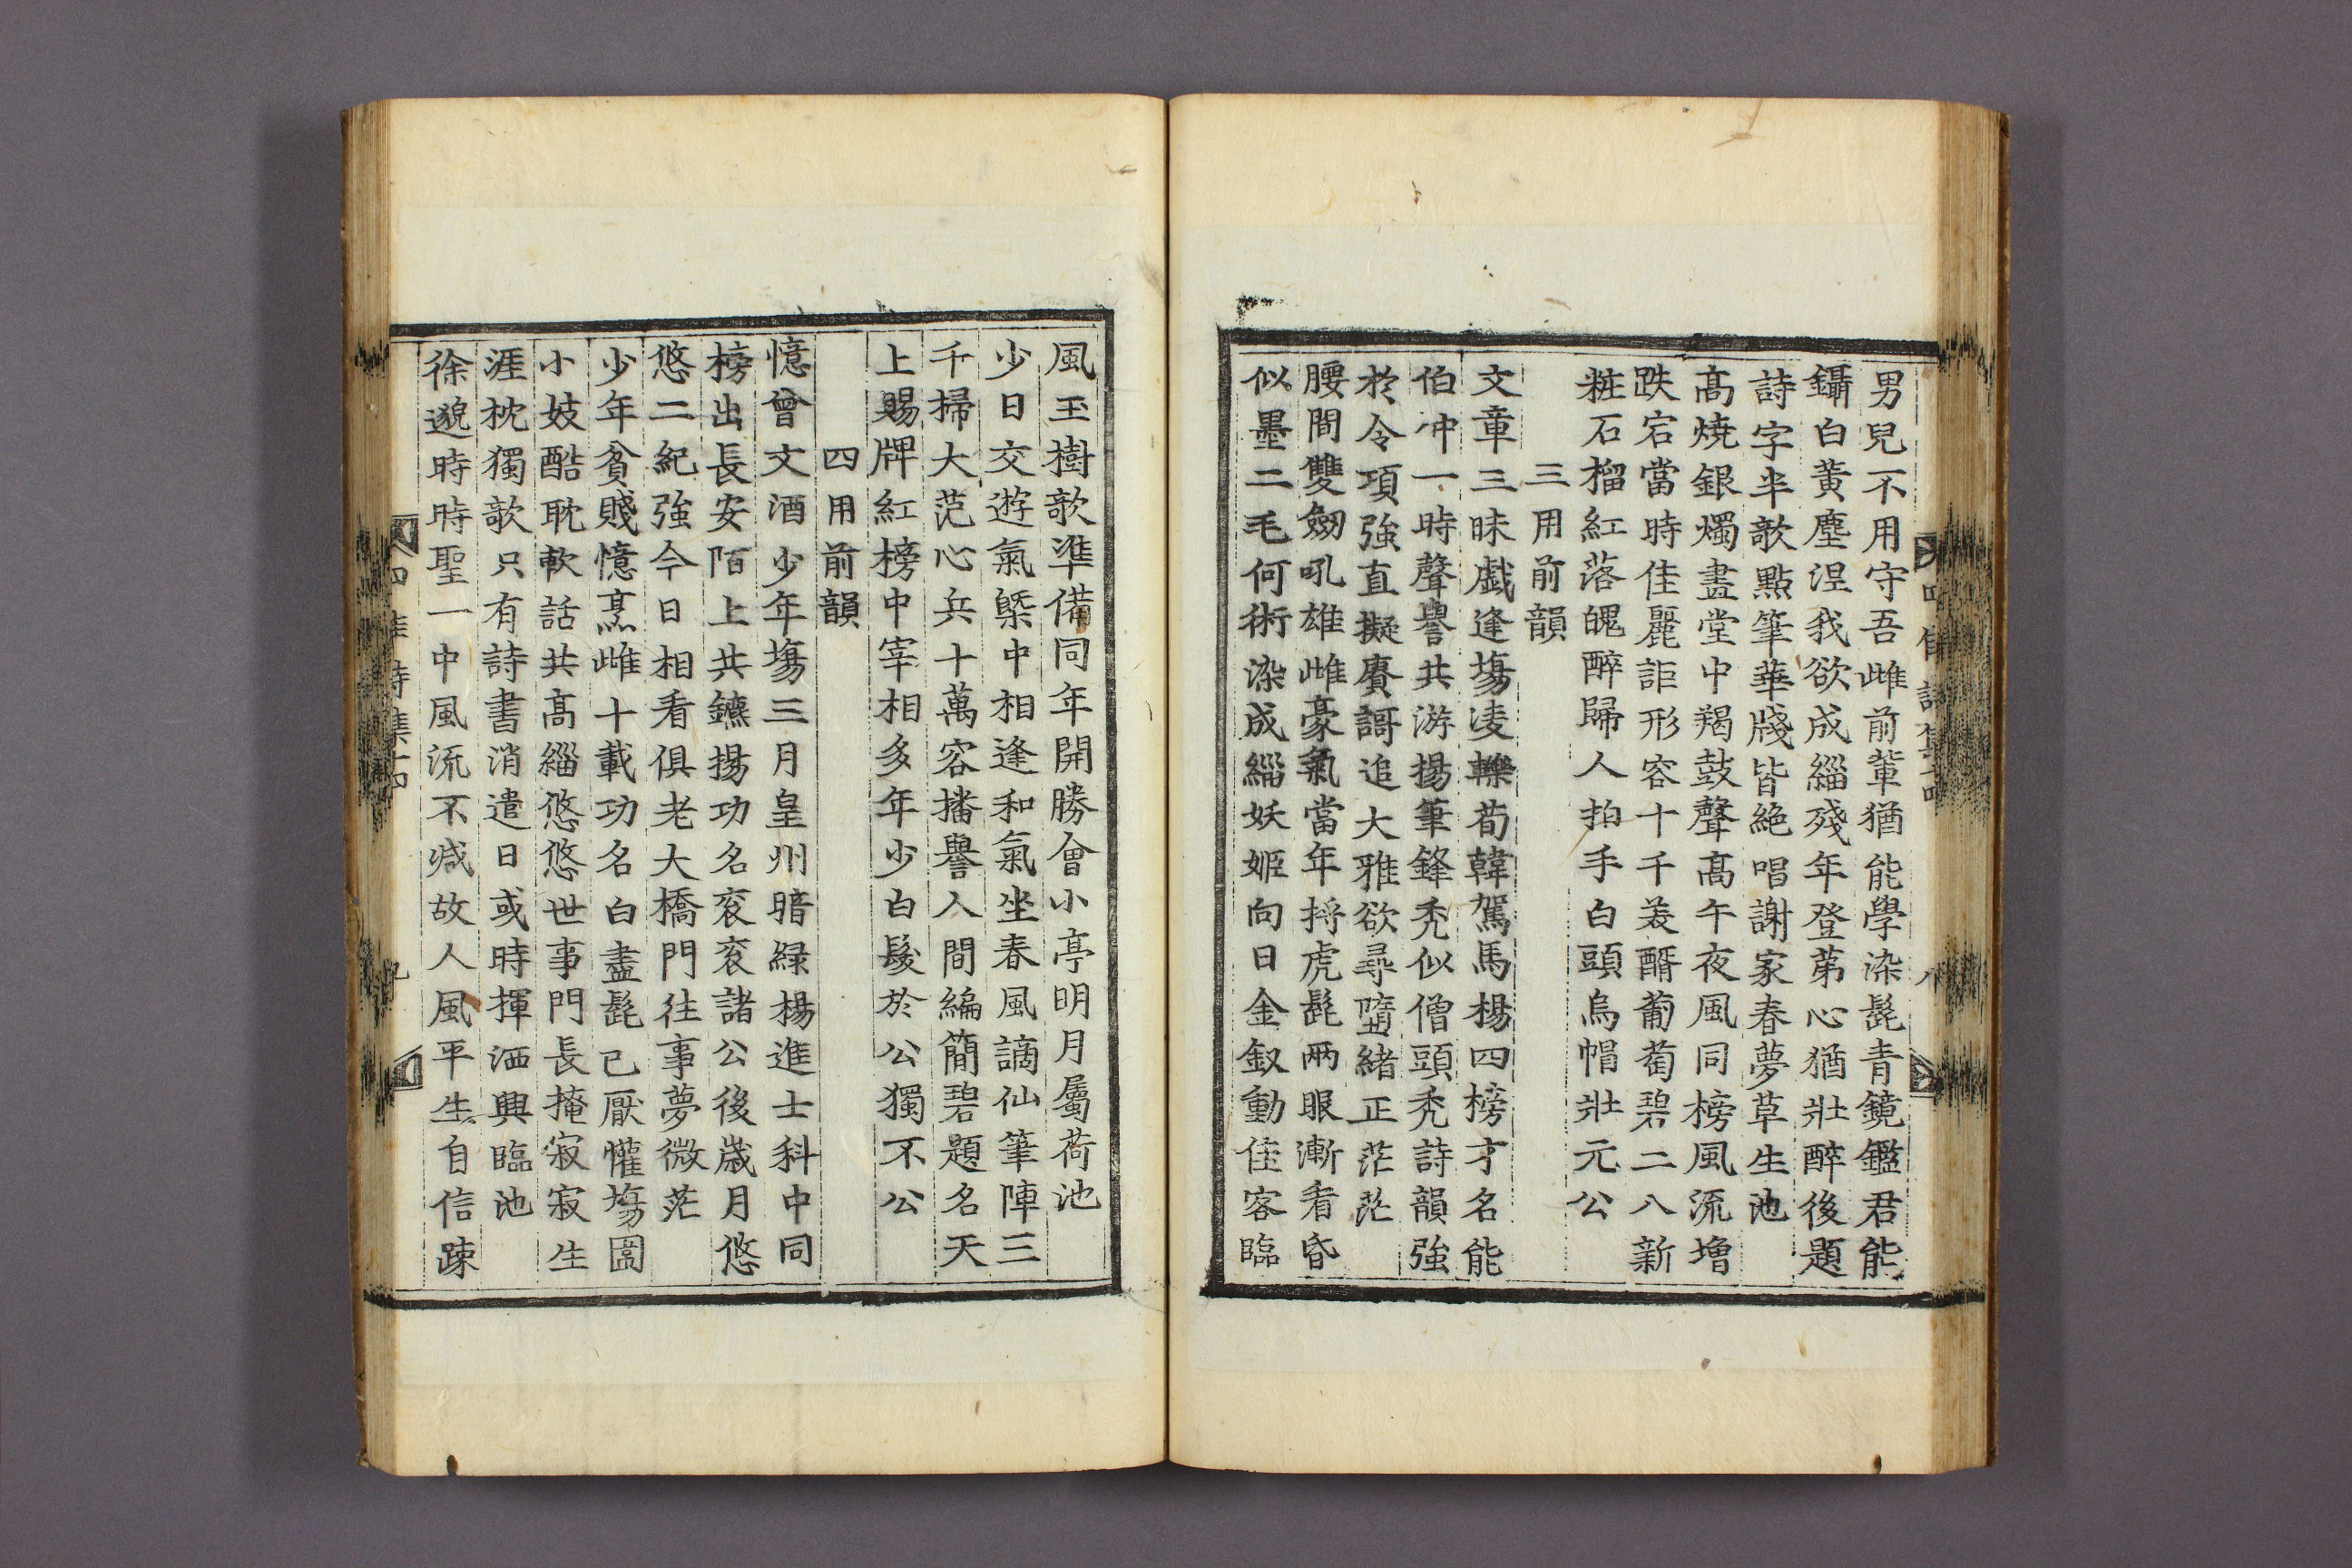 男兒不用守吾雌前輩猶能學染髭青鏡鑑君能
鑷白黃塵涅我欲成緇殘年登第心猶壯醉後題
詩字半欹點筆華牋皆絶唱謝家春夢草生池
高燒銀燭畫堂中羯鼓聲高午夜風同榜風流增
跌宕當時佳麗詎形容十千美醑葡萄碧二八新
粧石榴紅落魄醉歸人拍手白頭烏帽壯元公
三用前韻
文章三昧戱逢場凌轢荀韓駕馬楊四榜才名能
伯仲一時聲譽共游揚筆鋒秃似僧頭秃詩韻強
於令項強直擬賡謌追大雅欲尋墮緖正茫茫
腰間雙劒吼雄雌豪氣當年捋虎髭兩眼漸看昏
似墨二毛何術染成緇妖姬向日金釵動佳客臨
風玉樹欹準備同年開勝會小亭明月屬荷池
少日交遊氣槩中相逢和氣坐春風謫仙筆陣三
千掃大范心兵十萬容播譽人間編簡碧題名天
上賜牌紅榜中宰相多年少白髮於公獨不公
四用前韻
憶曾文酒少年塲三月皇州暗緑楊進士科中同
榜出長安陌上共鑣揚功名衮衮諸公後歲月悠
悠二紀強今日相看俱老大橋門往事夢微茫
少年貧賤憶烹雌十載功名白盡髭已厭懽塲圖
小妓酷耽軟話共高緇悠悠世事門長掩寂寂生
涯枕獨欹只有詩書消遣日或時揮洒興臨池
徐邈時時聖一中風流不减故人風平生自信踈
四佳詩集十四